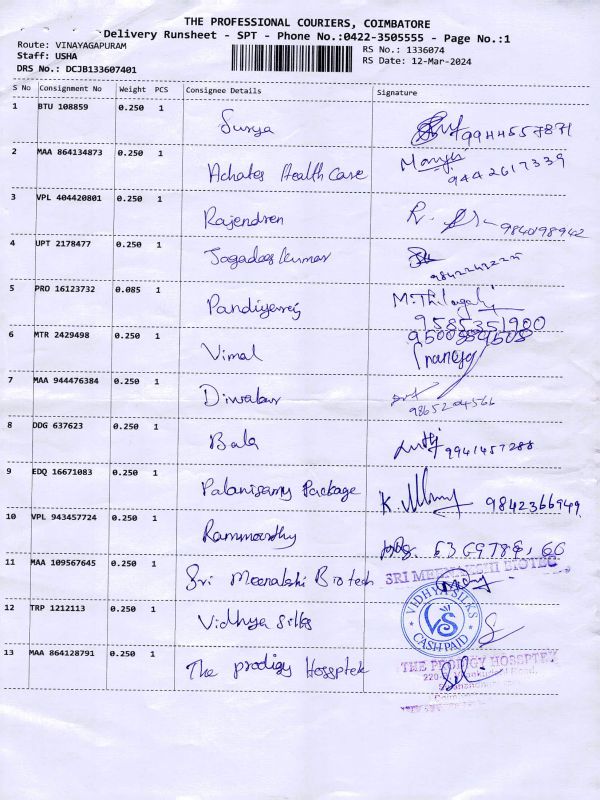 THE PROFESSIONAL COURIERS, COIMBATORE
Delivery Runsheet - SPT - Phone No.:0422-3505555 - Page No.:1
Route: VINAYAGAPURAM
RS No.: 1336074
Staff: USHA
RS Date: 12-Mar-2024
DRS No.: DCJB133607401
S No Consignment No Weight PCS Consignee Details Signature
1 BTU 108859 0.250 1 Surya 9944557871
2 MAA 864134873 0.250 1 Achates Health Care 9442617339
3 VPL 404420801 0.250 1 Rajendren R. 9840198942
4 UPT 2178477 0.250 1 Jogadees Kumar
5 PRO 16123732 0.085 1 Pandiyaraj M. 9585351900
6 MTR 2429498 0.250 1 Vimal
7 MAA 944476384 0.250 1 Diwakar 9865204566
8 DDG 637623 0.250 1 Bala 9941457288
9 EDQ 16671083 0.250 1 Palanisamy Package K. 9842366949
10 VPL 943457724 0.250 1 Rammoorthy
11 MAA 109567645 0.250 1 Sri Meenakshi Biotech SRI MEENAKSHI BIOTEC
12 TRP 1212113 0.250 1 Vidhya Silks VIDHYA SILKS VS CASH PAID
13 MAA 864128791 0.250 1 The prodigy Hossptek THE PRODIGY HOSSPTEK